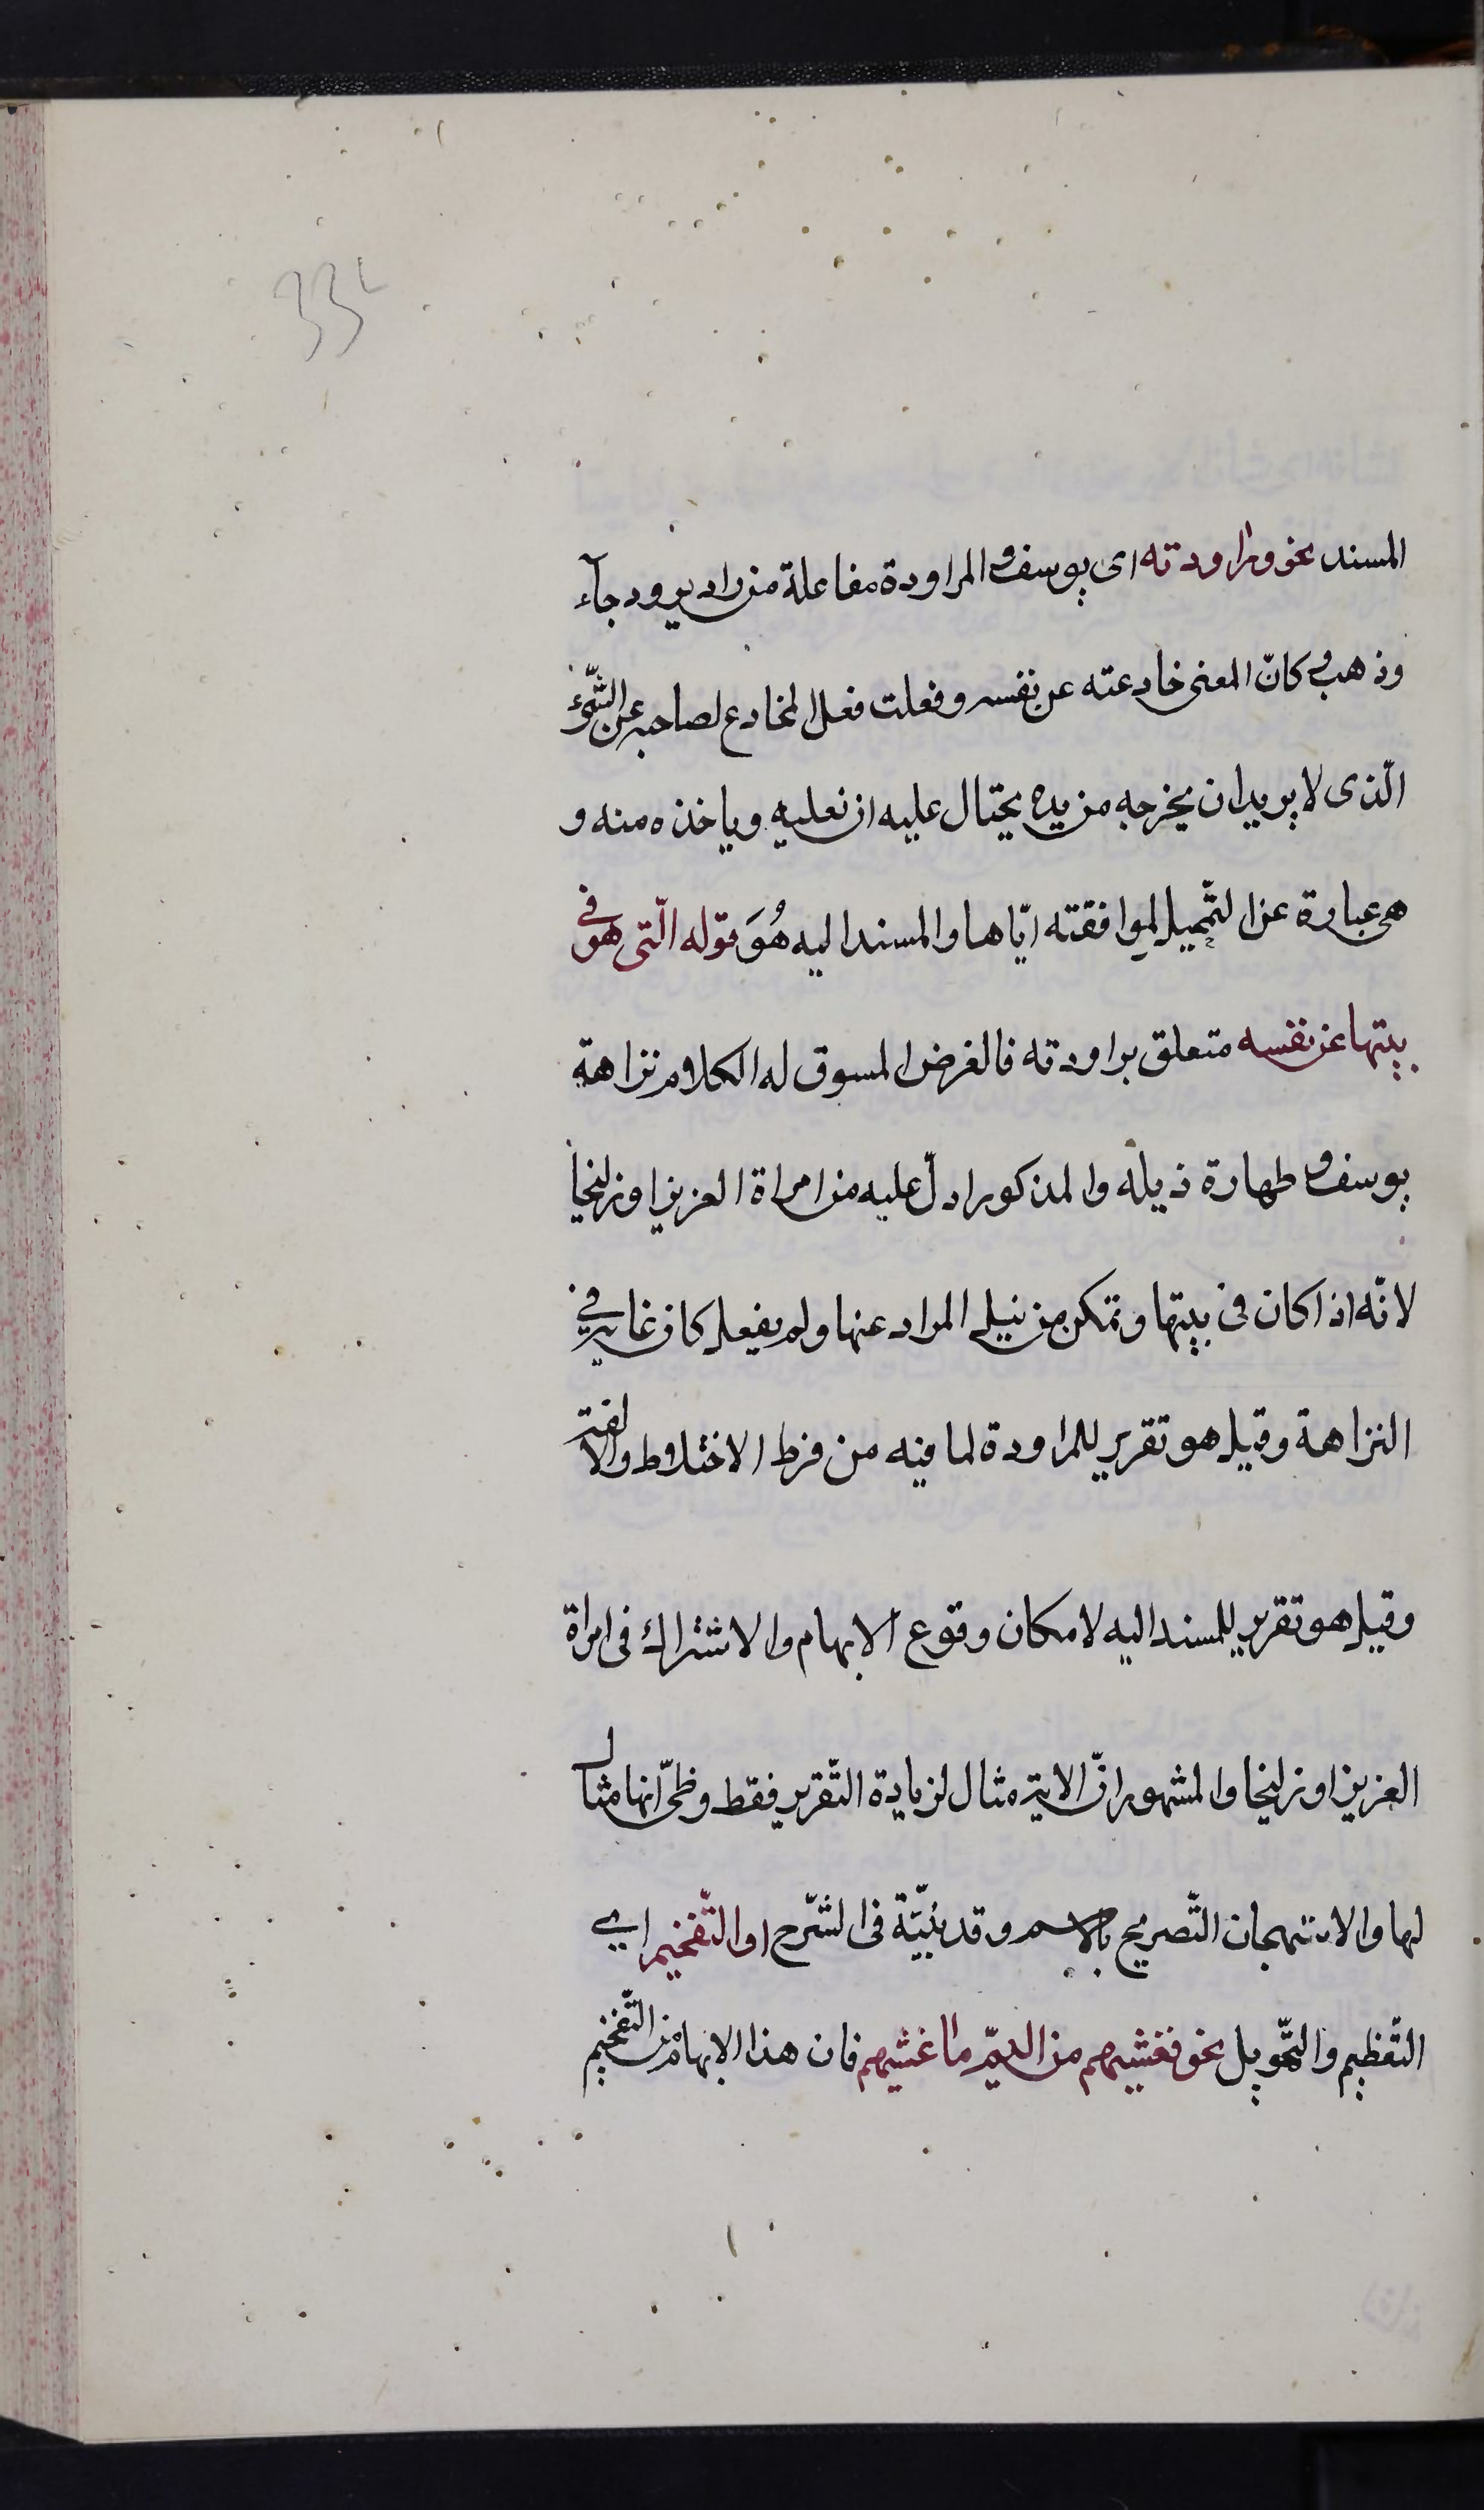 33
المسند نحو وراودته اى يوسف والمراودة مفاعلة من راد يرود جآء
وذهب وكانّ المعنى خادعته عن نفسه وفعلت فعل المخادع لصاحبه عن الشّىء
الّذى لا يريد ان يخرجه من يده يحتال عليه ان نغلبه وياخذه منه و
هى عبارة عن التّمحيل لموافقته ايّاها والمسند اليه هُوَ قوله الّتى هو فى
بيتها عن نفسه متعلق براودته فالغرض المسوق له الكلام نزاهة
يوسف و طهارة ذيله والمذكور ادلّ عليه من امراة العزيز او زليخا
لانّه اذا كان فى بيتها وتمكن من نيل المراد عنها ولم يفعل كان غاية فى
النزاهة وقيل هو تقرير للمراودة لما فيه من فرط الاختلاط والالفة
وقيل هو تقرير للمسند اليه لامكان وقوع الابهام والاشتراك فى امراة
العزيز او زليخا والمشهور انّ الاية مثال لزيادة التّقرير فقط وظنّى انها مثال
لها والاستهجان التّصريح بالاسم وقد بيّنة فى الشّرح او التّفخيم اى
التّعظيم والتّهويل نحو فغشيهم من اليمّ ما غشيهم فان هذا الابهام من التّفخيم